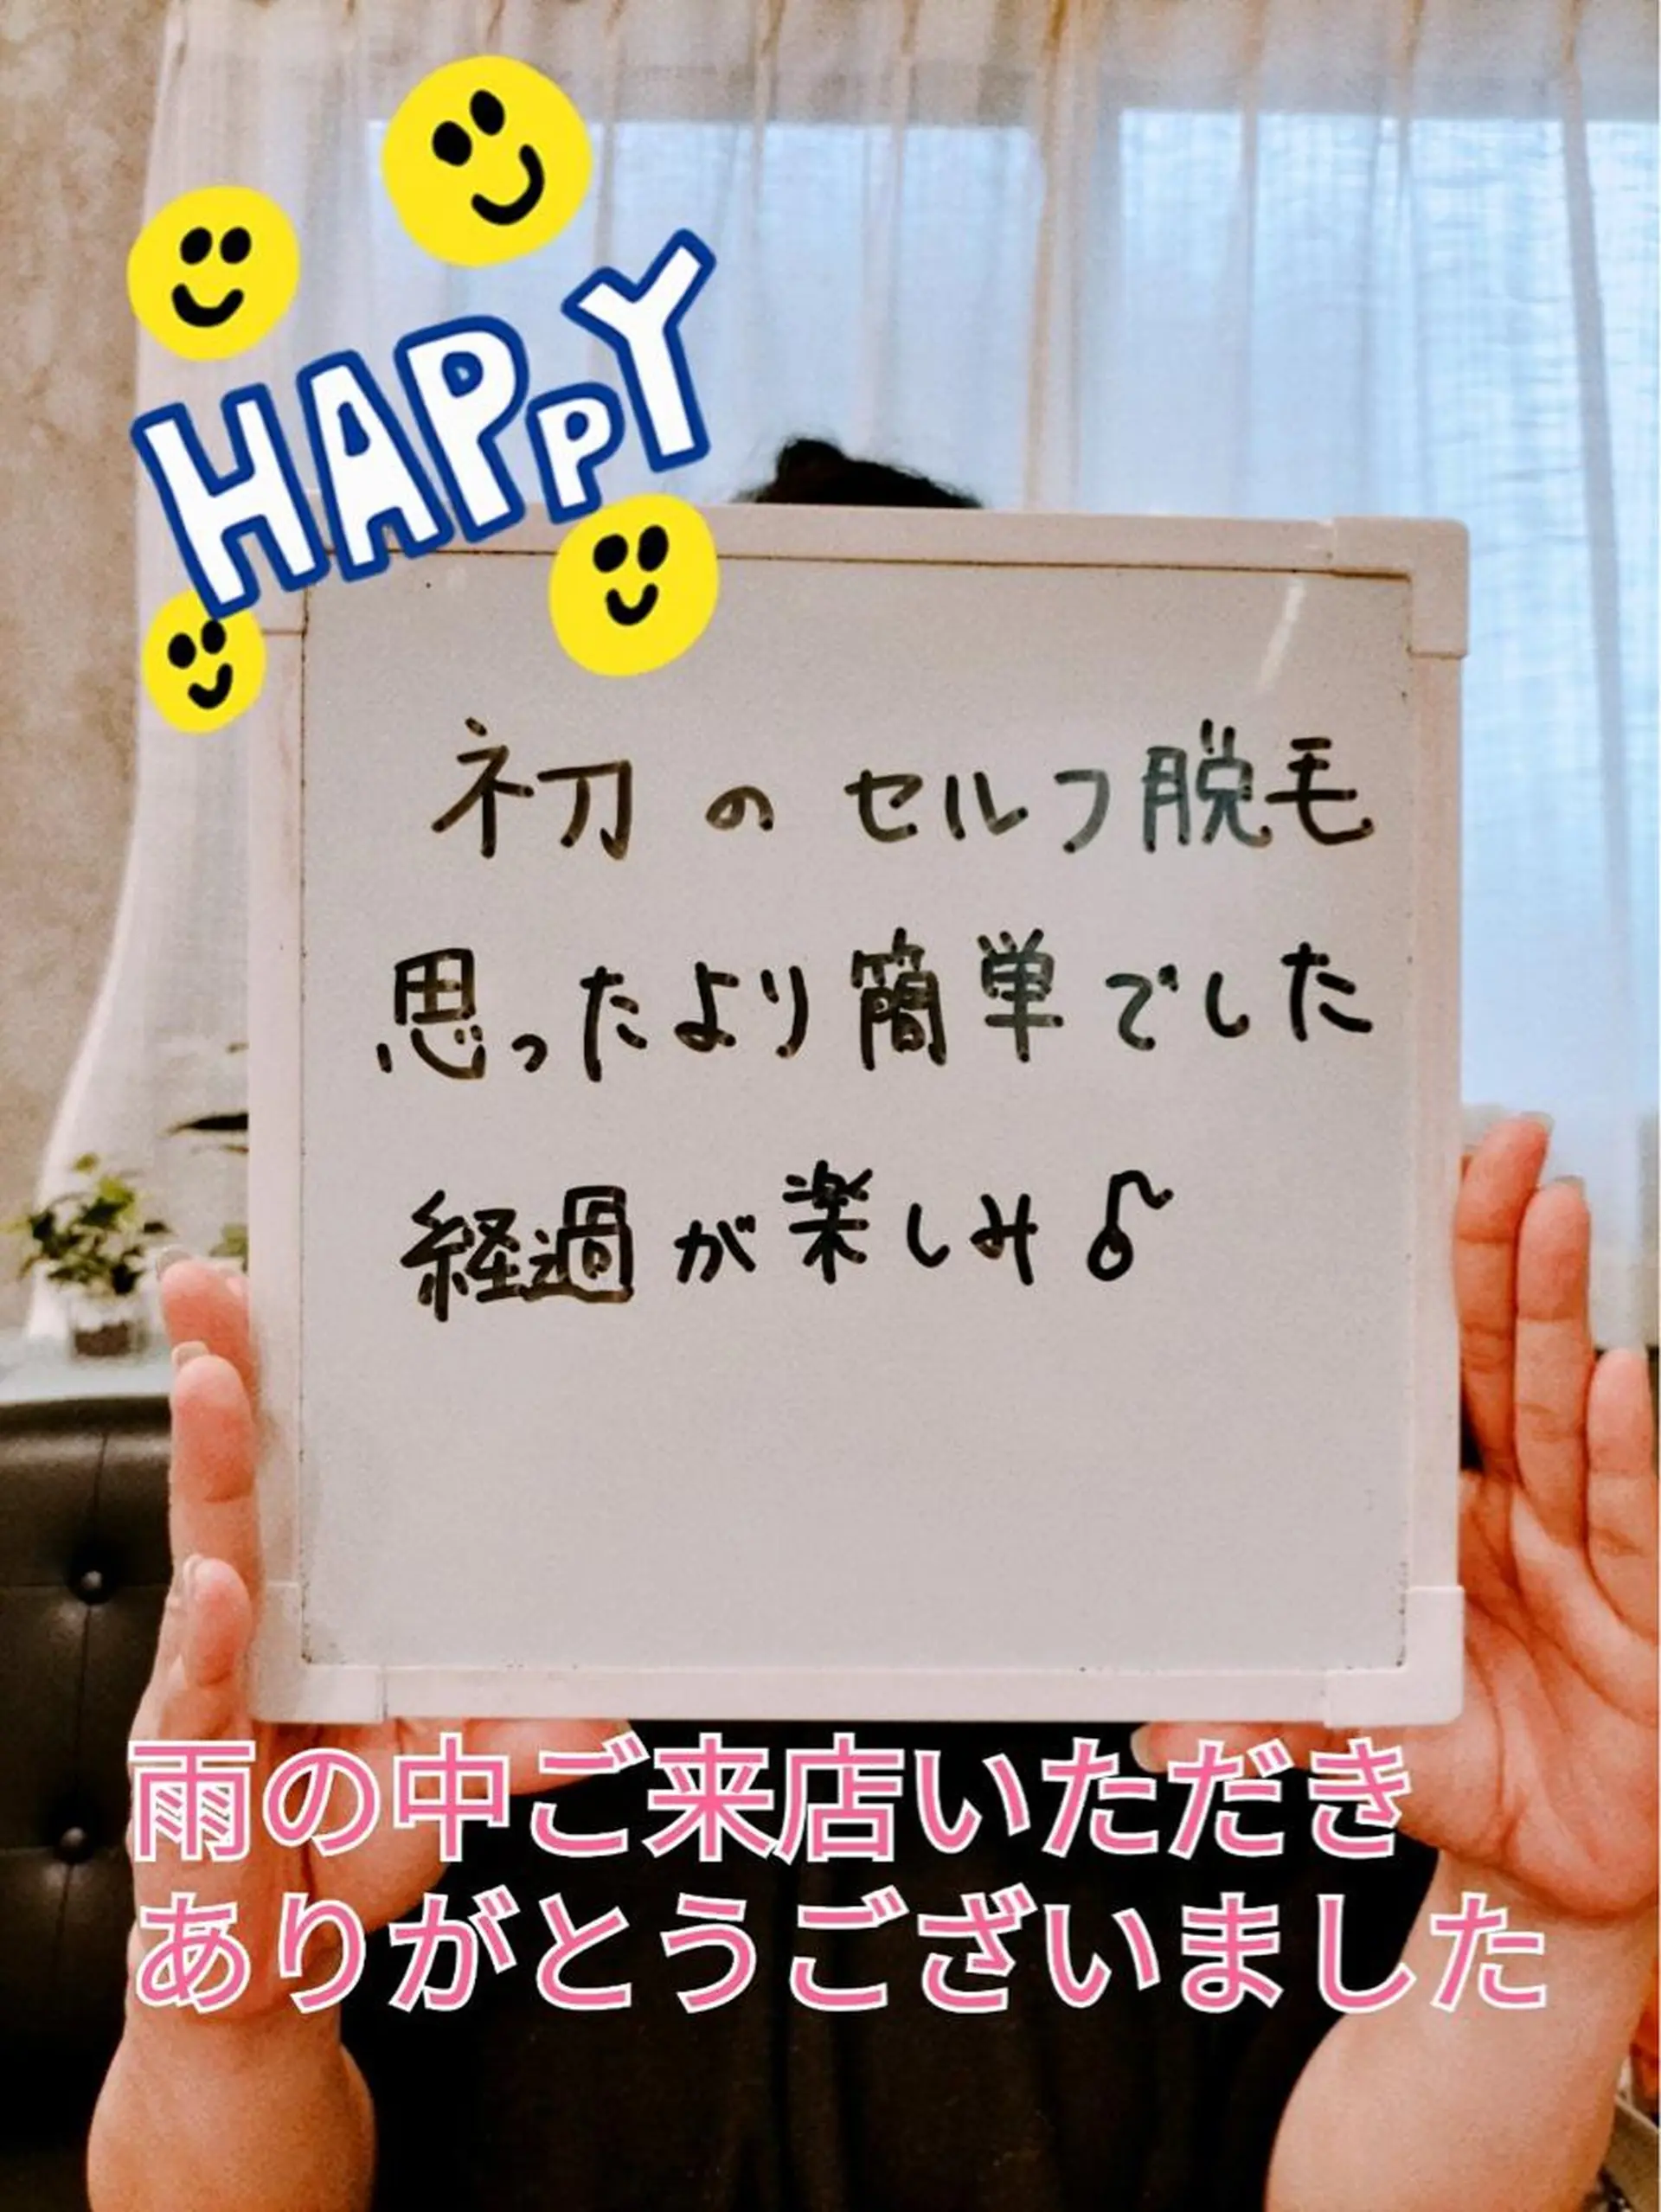 HAPPY
初のセルフ脱毛
思ったより簡単でした
経過が楽しみ♪
雨の中ご来店いただき
ありがとうございました